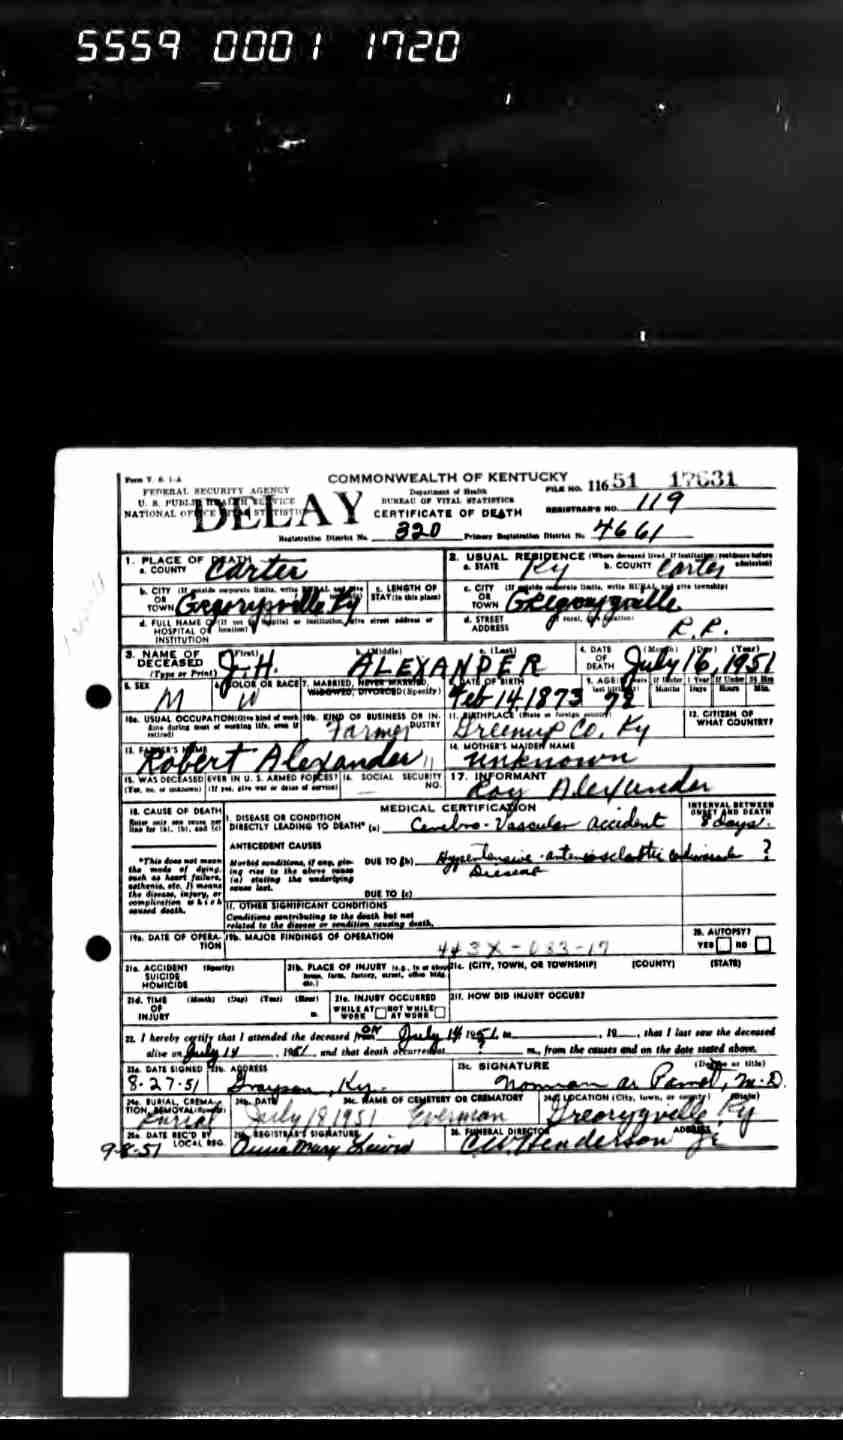 5559 0001 1720
Form V. S. 1-A
COMMONWEALTH OF KENTUCKY
FILE NO. 116 51 17631
FEDERAL SECURITY AGENCY
Department of Health
U. S. PUBLIC HEALTH SERVICE
BUREAU OF VITAL STATISTICS
REGISTRAR'S NO. 119
NATIONAL OFFICE VITAL STATISTICS
DELAY
CERTIFICATE OF DEATH
Registration District No. 320 Primary Registration District No. 4661
1. PLACE OF DEATH
a. COUNTY Carter
2. USUAL RESIDENCE (Where deceased lived. If institution: residence before admission)
a. STATE Ky b. COUNTY Carter
b. CITY OR TOWN Gregoryville Ky
c. LENGTH OF STAY (in this place)
c. CITY OR TOWN Gregoryville
d. FULL NAME OF HOSPITAL OR INSTITUTION
d. STREET ADDRESS R.R.
3. NAME OF DECEASED (Type or Print)
(First) J.H. b. (Middle) c. (Last) ALEXANDER
4. DATE OF DEATH (Month) (Day) (Year) July 16, 1951
5. SEX M
6. COLOR OR RACE W
7. MARRIED, NEVER MARRIED, WIDOWED, DIVORCED (Specify)
DATE OF BIRTH Feb 14, 1873
9. AGE (In years last birthday) 78
If Under 1 Year Months Days
If Under 24 Hrs Hours Min.
10a. USUAL OCCUPATION (Give kind of work done during most of working life, even if retired)
10b. KIND OF BUSINESS OR INDUSTRY Farmer
11. BIRTHPLACE (State or foreign country) Greenup Co. Ky
12. CITIZEN OF WHAT COUNTRY?
13. FATHER'S NAME Robert Alexander
14. MOTHER'S MAIDEN NAME unknown
15. WAS DECEASED EVER IN U. S. ARMED FORCES?
(Yes, no, or unknown) (If yes, give war or dates of service)
16. SOCIAL SECURITY NO.
17. INFORMANT Roy Alexander
18. CAUSE OF DEATH
Enter only one cause per line for (a), (b), and (c)
MEDICAL CERTIFICATION
INTERVAL BETWEEN ONSET AND DEATH
I. DISEASE OR CONDITION
DIRECTLY LEADING TO DEATH* (a) Cerebro-Vascular accident 8 days.
*This does not mean the mode of dying, such as heart failure, asthenia, etc. It means the disease, injury, or complication which caused death.
ANTECEDENT CAUSES
Morbid conditions, if any, giving rise to the above cause (a) stating the underlying cause last.
DUE TO (b) Hypertensive-arteriosclerotic Disease ?
DUE TO (c)
II. OTHER SIGNIFICANT CONDITIONS
Conditions contributing to the death but not related to the disease or condition causing death.
19a. DATE OF OPERATION
19b. MAJOR FINDINGS OF OPERATION
443X-083-17
20. AUTOPSY?
YES NO
21a. ACCIDENT SUICIDE HOMICIDE (Specify)
21b. PLACE OF INJURY (e.g., in or about home, farm, factory, street, office bldg., etc.)
21c. (CITY, TOWN, OR TOWNSHIP) (COUNTY) (STATE)
21d. TIME OF INJURY (Month) (Day) (Year) (Hour) m.
21e. INJURY OCCURRED
WHILE AT WORK NOT WHILE AT WORK
21f. HOW DID INJURY OCCUR?
22. I hereby certify that I attended the deceased from ON July 14 1951, to , 19 , that I last saw the deceased
alive on July 14 , 1951, and that death occurred at ? m., from the causes and on the date stated above.
23a. DATE SIGNED 8-27-51
23b. ADDRESS Grayson, Ky.
23c. SIGNATURE (Degree or title) M.D.
24a. BURIAL, CREMATION, REMOVAL (Specify) Burial
24b. DATE July 18 1951
24c. NAME OF CEMETERY OR CREMATORY Everman
24d. LOCATION (City, town, or county) (State) Greorygville, Ky
25a. DATE REC'D BY LOCAL REG. 9-8-51
25b. REGISTRAR'S SIGNATURE Anna Mary Lewis
26. FUNERAL DIRECTOR ADDRESS C.W. Henderson Jr